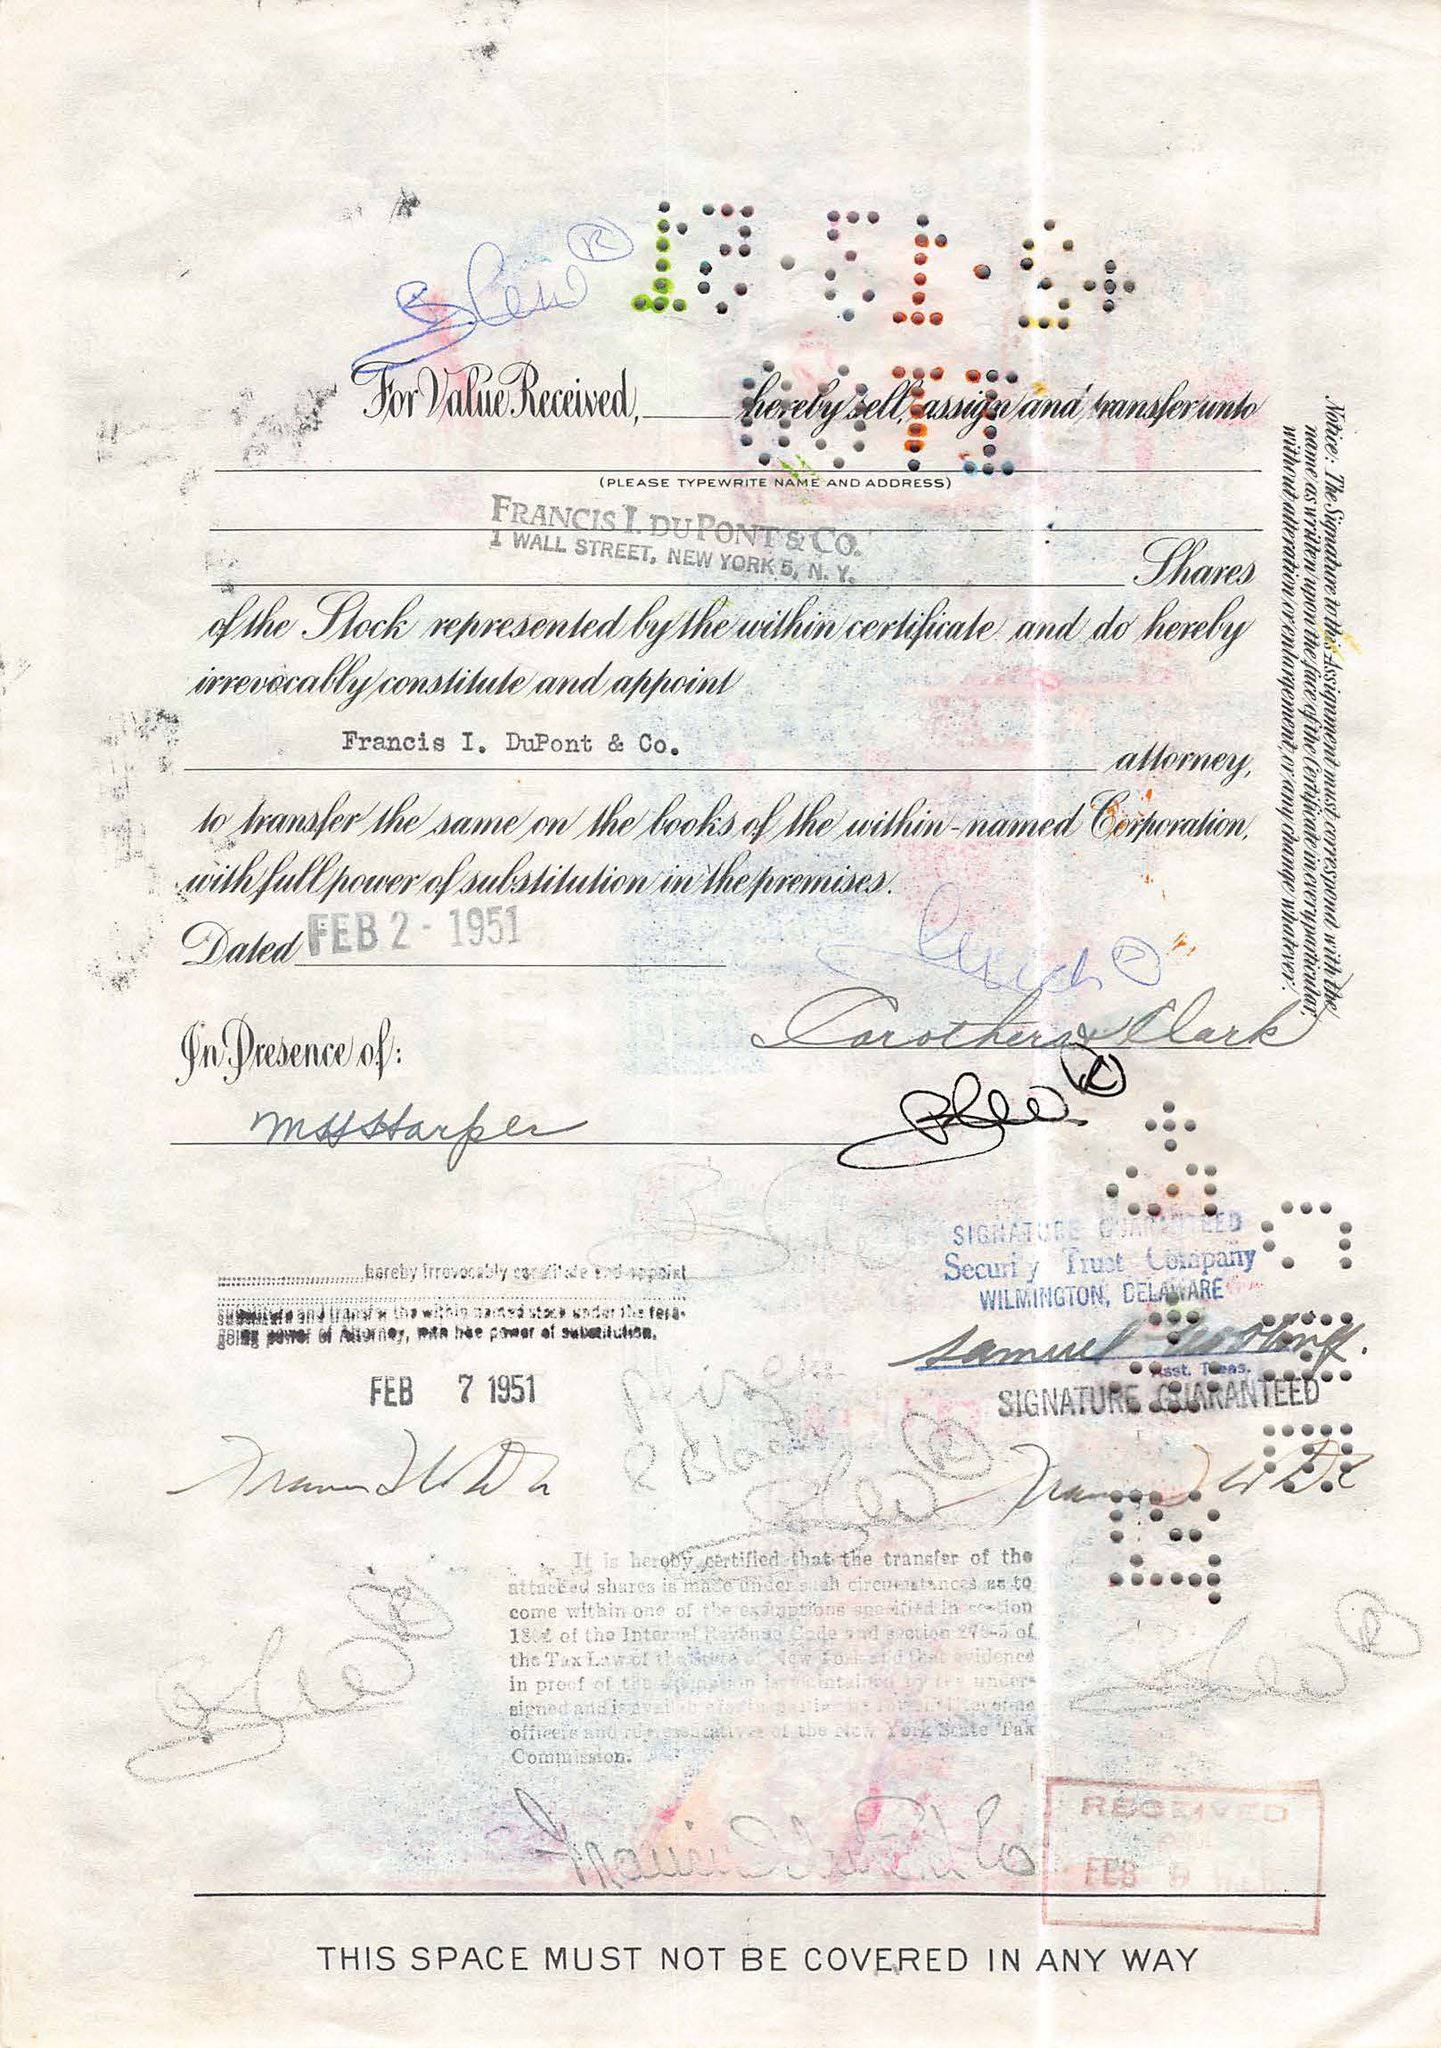 For Value Received, hereby sell, assign and transfer unto
(PLEASE TYPEWRITE NAME AND ADDRESS)
FRANCIS I. DUPONT & CO.
1 WALL STREET, NEW YORK 5, N. Y.
Shares
of the Stock represented by the within certificate and do hereby
irrevocably constitute and appoint
Francis I. DuPont & Co.
attorney,
to transfer the same on the books of the within-named Corporation,
with full power of substitution in the premises.
Dated FEB 2 - 1951
Carothers Clark
In Presence of:
M H Harper
Notice: The Signature to this Assignment must correspond with the
name as written upon the face of the Certificate in every particular,
without alteration or enlargement, or any change whatever.
SIGNATURE GUARANTEED
Security Trust Company
WILMINGTON, DELAWARE
Samuel
Asst. Treas.
SIGNATURE GUARANTEED
hereby irrevocably constitute and appoint
substitute and transfer the within named stock under the fore-
going power of Attorney, with like power of substitution.
FEB 7 1951
It is hereby certified that the transfer of the
attached shares is made under such circumstances as to
come within one of the exemptions specified in section
of the Internal Revenue Code and section of
the Tax Law of the State of New York and that evidence
in proof of the exemption is maintained by the under-
signed and is
officers and representatives of the New York State Tax
Commission.
RECEIVED
FEB
THIS SPACE MUST NOT BE COVERED IN ANY WAY